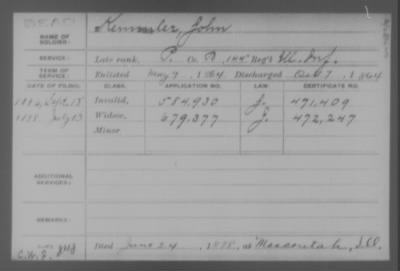 DEAD
Kemmler, John
NAME OF SOLDIER:
SERVICE: Late rank, P. Co. D, 144" Reg't Ill. Inf.
TERM OF SERVICE: Enlisted May 7, 1864 Discharged Oct 7, 1864
DATE OF FILING. CLASS. APPLICATION NO. LAW. CERTIFICATE NO.
Sept. 15 Invalid, 584,930 J. 471,409
July 13 Widow, 679,377 J. 472,247
Minor
ADDITIONAL SERVICES:
REMARKS:
Died June 24, 1898, at Mascoutah, Ill.